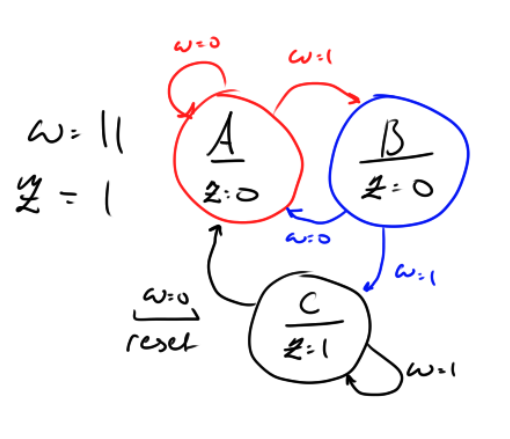 w=0
w=1
w=11
z=1
A
z=0
B
z=0
w=0
w=1
w=0
reset
C
z=1
w=1